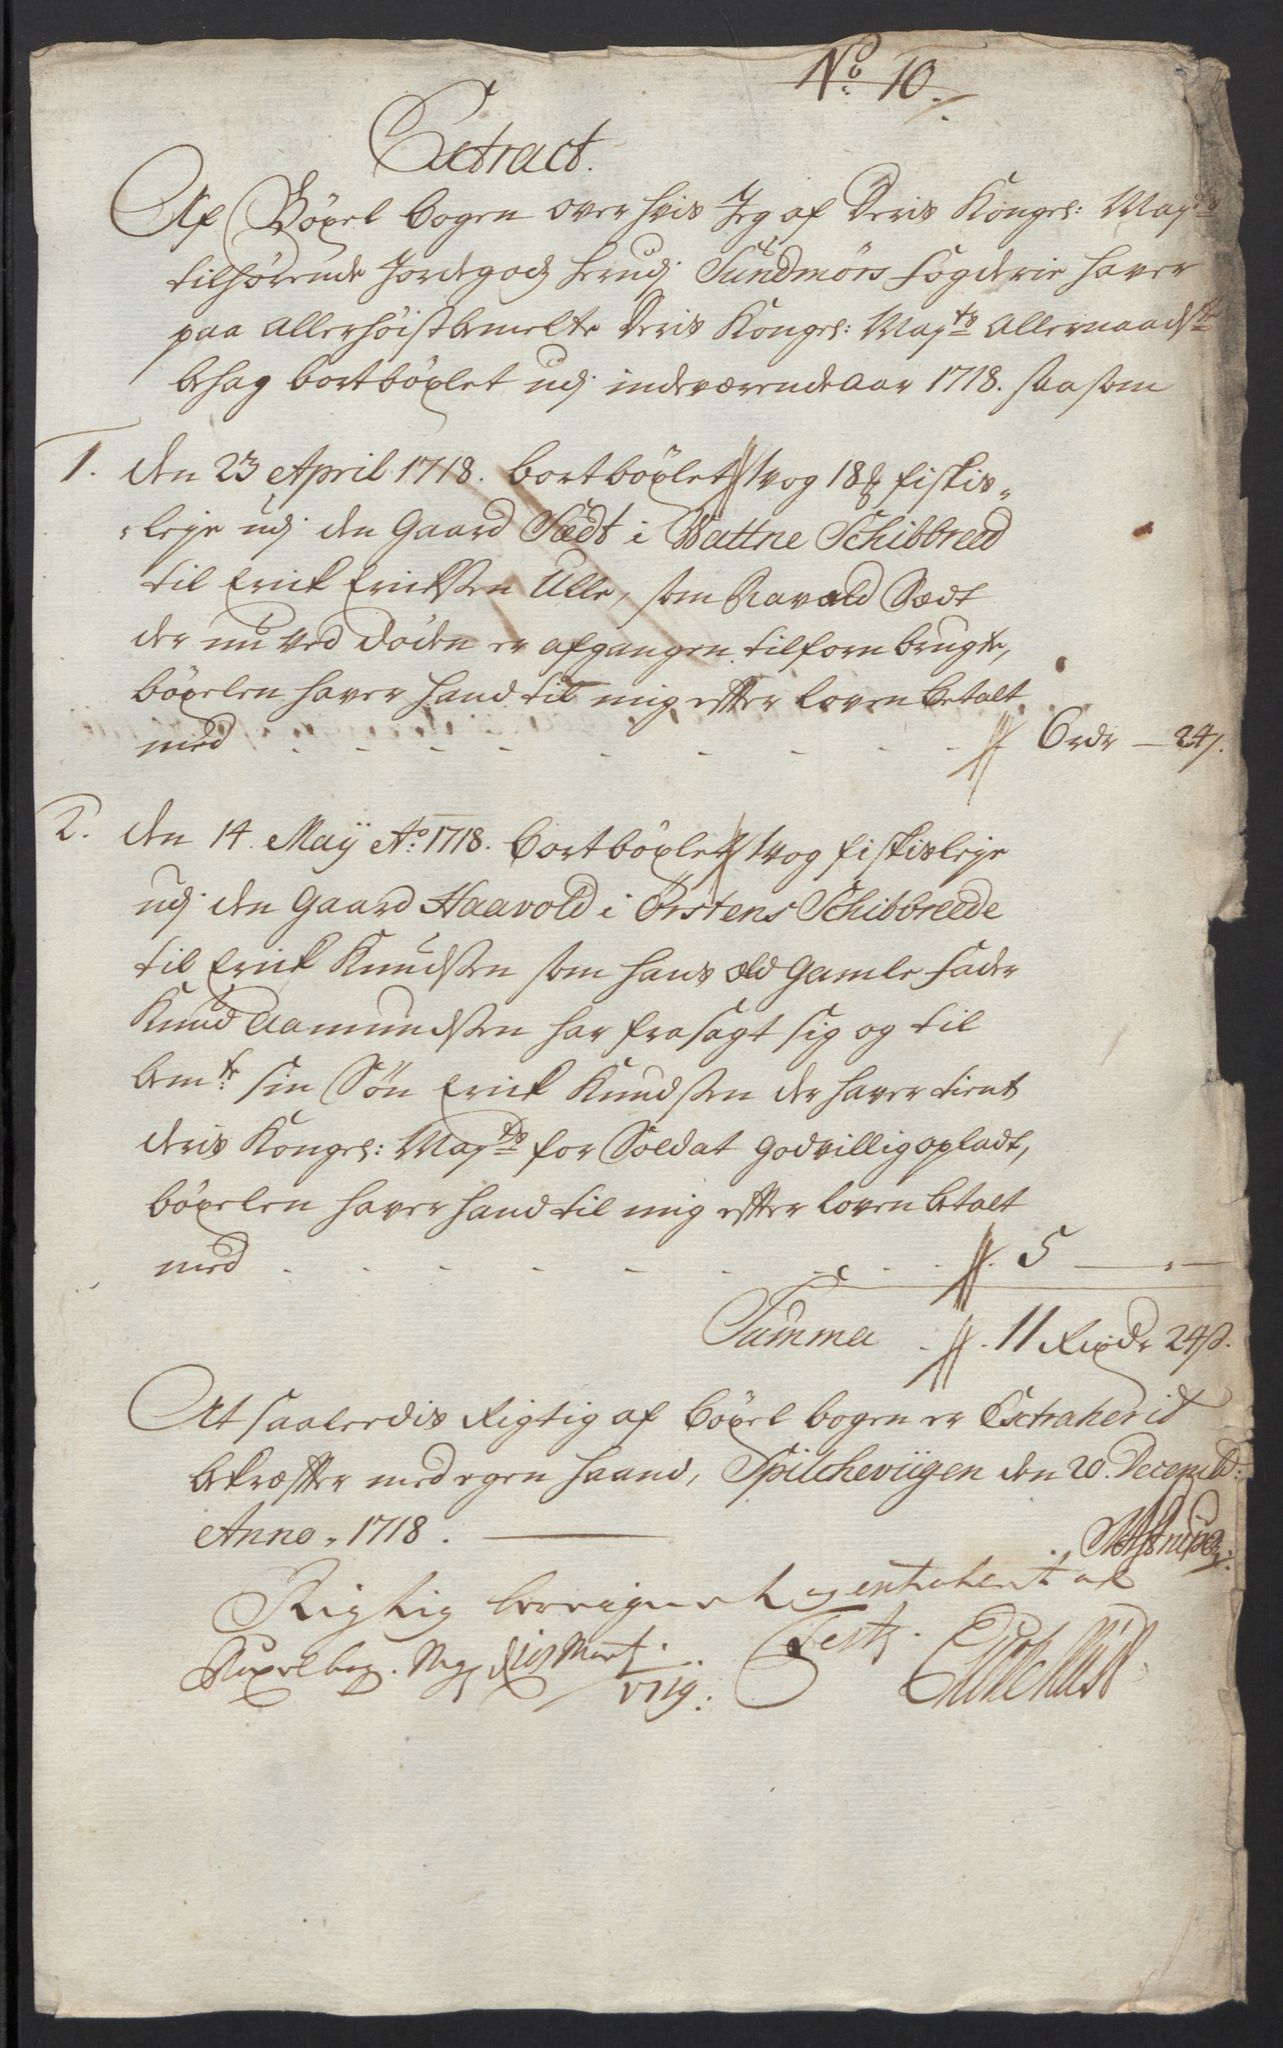 No. 10.
Extract.
Af Böxel bogen over hvis Jeg af Deris Kongel: Mayts
tilhørende Jordegods herudj Sundmørs fogderie haver
paa allerhøistbemelte Deris Kongel: Mayts allernaadste
behag bortböxlet udj indeværende aar 1718. saasom
1. den 23 April 1718. bortböxlet 1 vog 18 ℔ fiskis-
leje udj den Gaard Sædt i Wattne Schibbreed
til Erick Ericksen Ulle, som Ravald Sædt
der nu ved døden er afgangen tilforn brugte,
böxelen haver hand til mig effter loven betalt
med - - - - - - - - 6 rdr - 24 s.
2. den 14. Maÿ Ao: 1718. bortböxlet 1 vog fiskisleje
udj den Gaard Haavold i Örstens Schibbreede
til Erick Knudsen som hans old Gamle fader
Knud Aamundsen har frasagt sig og til
bemte sin Søn Erick Knudsen der haver tient
deris Kongel: Mayts for Soldat godvillig opladt,
böxelen haver hand til mig effter loven betalt
med - - - - - - - 5 - „ -
Summa - 11 Rixdr 24 s.
At saaledis Rigtig af böxel bogen er Extraherit
bekræffter med egen haand, Spilcheviigen den 20. Decembr:
Anno 1718.
Rigtig og extrahert af
Böxelbog. d 18 Marti
1719. Test.